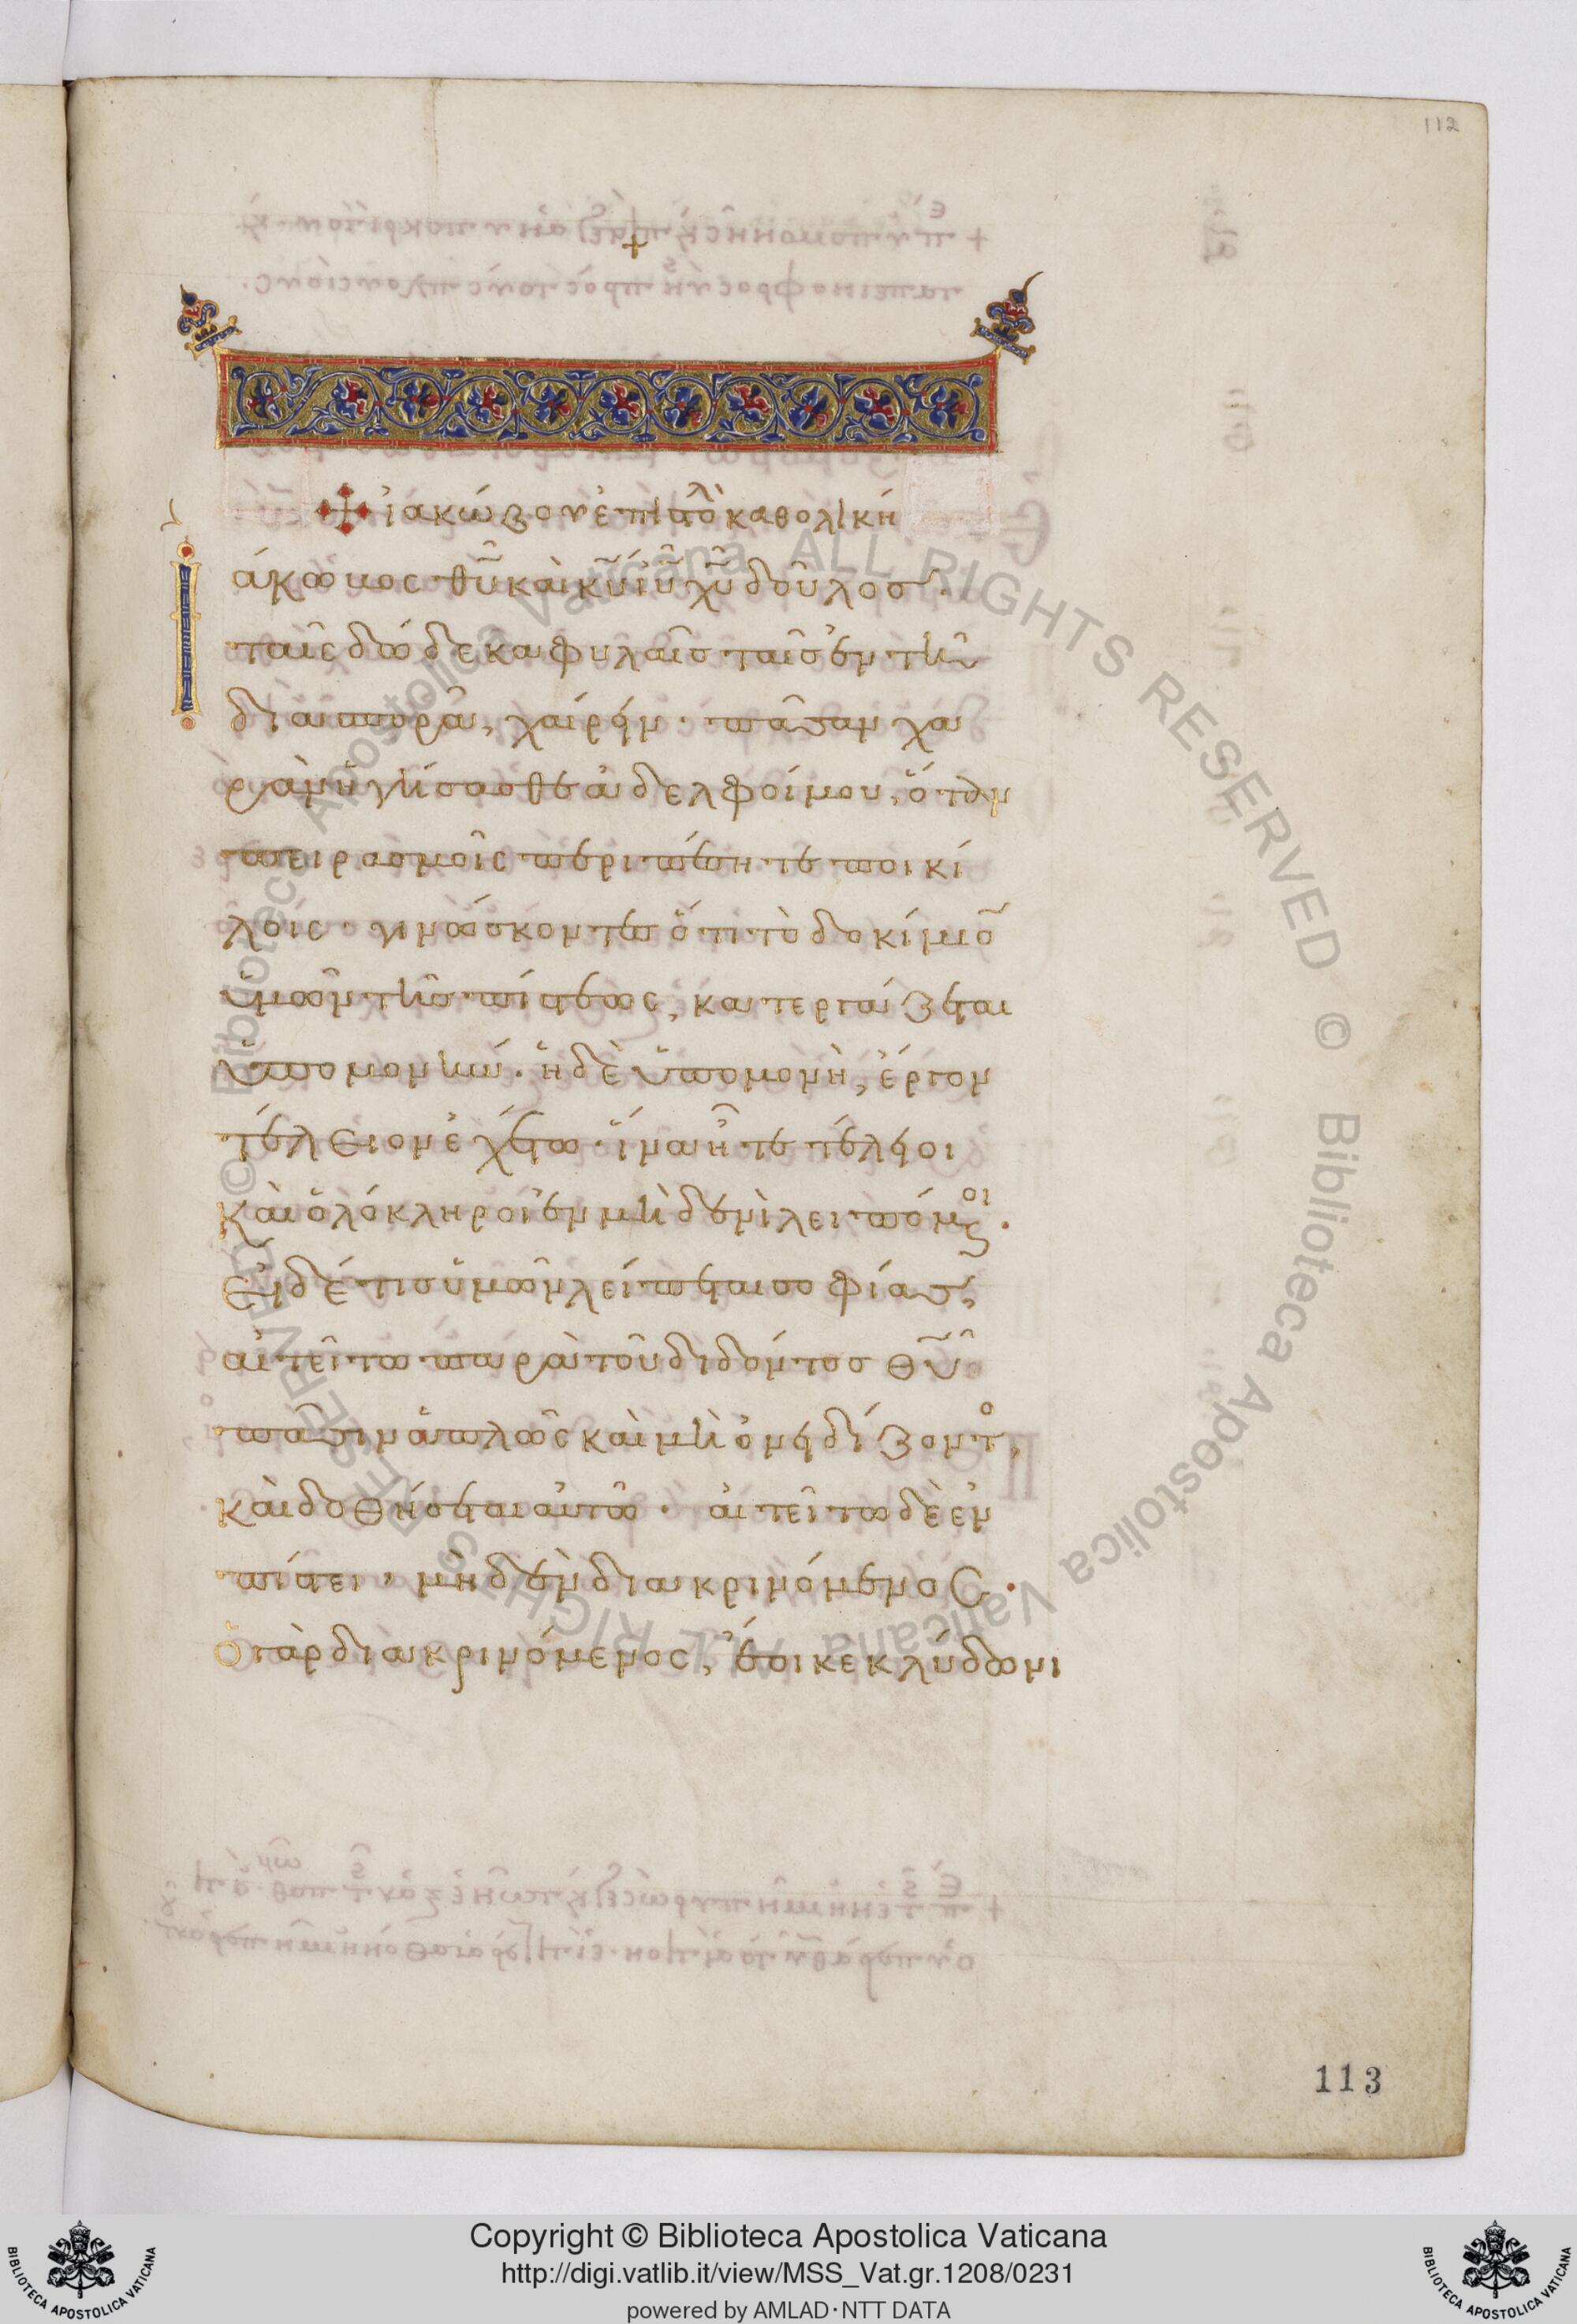 112
+
ἰακώβου ἐπιστολὴ καθολικὴ
Ἰάκωβος θῦ καὶ κῦ ἰῦ χῦ δοῦλος·
ταῖς δώδεκα φυλαῖς ταῖς ἐν τῆ
διασπορᾶ, χαίρειν· πᾶσαν χα
ρὰν ἡγήσασθε ἀδελφοί μου, ὅταν
πειρασμοῖς περιπέσητε ποικί
λοις· γινώσκοντες ὅτι τὸ δοκίμιο̄
ὑμῶν τῆς πίστεως, κατεργάζεται
ὑπομονήν· ἡ δὲ ὑπομονὴ, ἔργον
τέλειον ἐχέτω· ἵνα ἦτε τέλειοι
καὶ ὁλόκληροι ἐν μηδενὶ λειπόμενοι·
εἰ δέ τις ὑμῶν λείπεται σοφίας,
αἰτείτω παρὰ τοῦ διδόντος θῦ
πᾶσιν ἁπλῶς καὶ μὴ ὀνειδίζοντος,
καὶ δοθήσεται αὐτῶ· αἰτείτω δὲ ἐν
πίστει, μηδὲν διακρινόμενος·
ὁ γὰρ διακρινόμενος, ἔοικε κλύδωνι
113
Copyright © Biblioteca Apostolica Vaticana
http://digi.vatlib.it/view/MSS_Vat.gr.1208/0231
powered by AMLAD·NTT DATA
BIBLIOTECA APOSTOLICA VATICANA
BIBLIOTECA APOSTOLICA VATICANA
© Biblioteca Apostolica Vaticana ALL RIGHTS RESERVED © Biblioteca Apostolica Vaticana ALL RIGHTS RESERVED